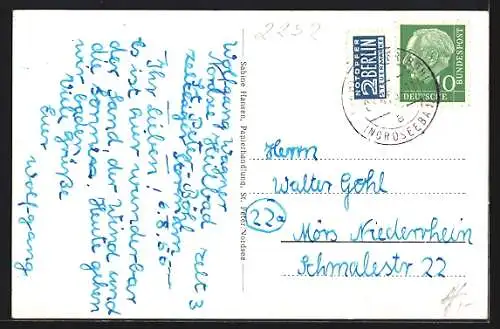 2252
Wolfgang Wagner
Nordsee Heilbad
Zelt 3
St. Peter-Ording
6.8.60
Ihr Lieben!
Es ist hier wunderbar
der Sand, der Wind und
die Sonne. Heute gehen
wir baden.
Viele Grüße
Euer
Wolfgang
Sabine Hansen, Papierhandlung, St. Peter/Nordsee
NOTOPFER
2 BERLIN
STEUERMARKE
10
DEUTSCHE BUNDESPOST
(NORDSEEBAD)
Herrn
Walter Gohl
22a
Mörs Niederrhein
Schmalestr 22